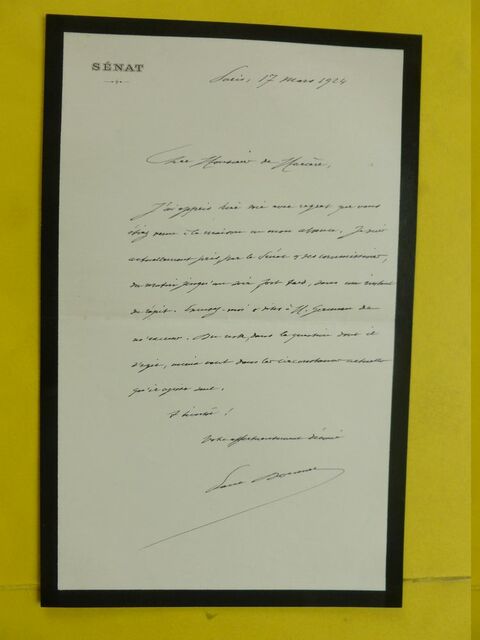 SÉNAT
Paris, 17 mars 1924
Cher Monsieur de Marcère,
J'ai appris hier soir avec regret que vous
étiez venu à la maison en mon absence. Je suis
actuellement pris, par le Sénat & ses commissions,
du matin jusqu'au soir fort tard, sans un instant
de répit. Excusez-moi & dites à M. Germain de
m'excuser. Du reste, dans la question dont il
s'agit, mieux vaut dans les circonstances actuelles
qu'il agisse seul.
A bientôt !
Votre affectueusement dévoué
Paul Doumer